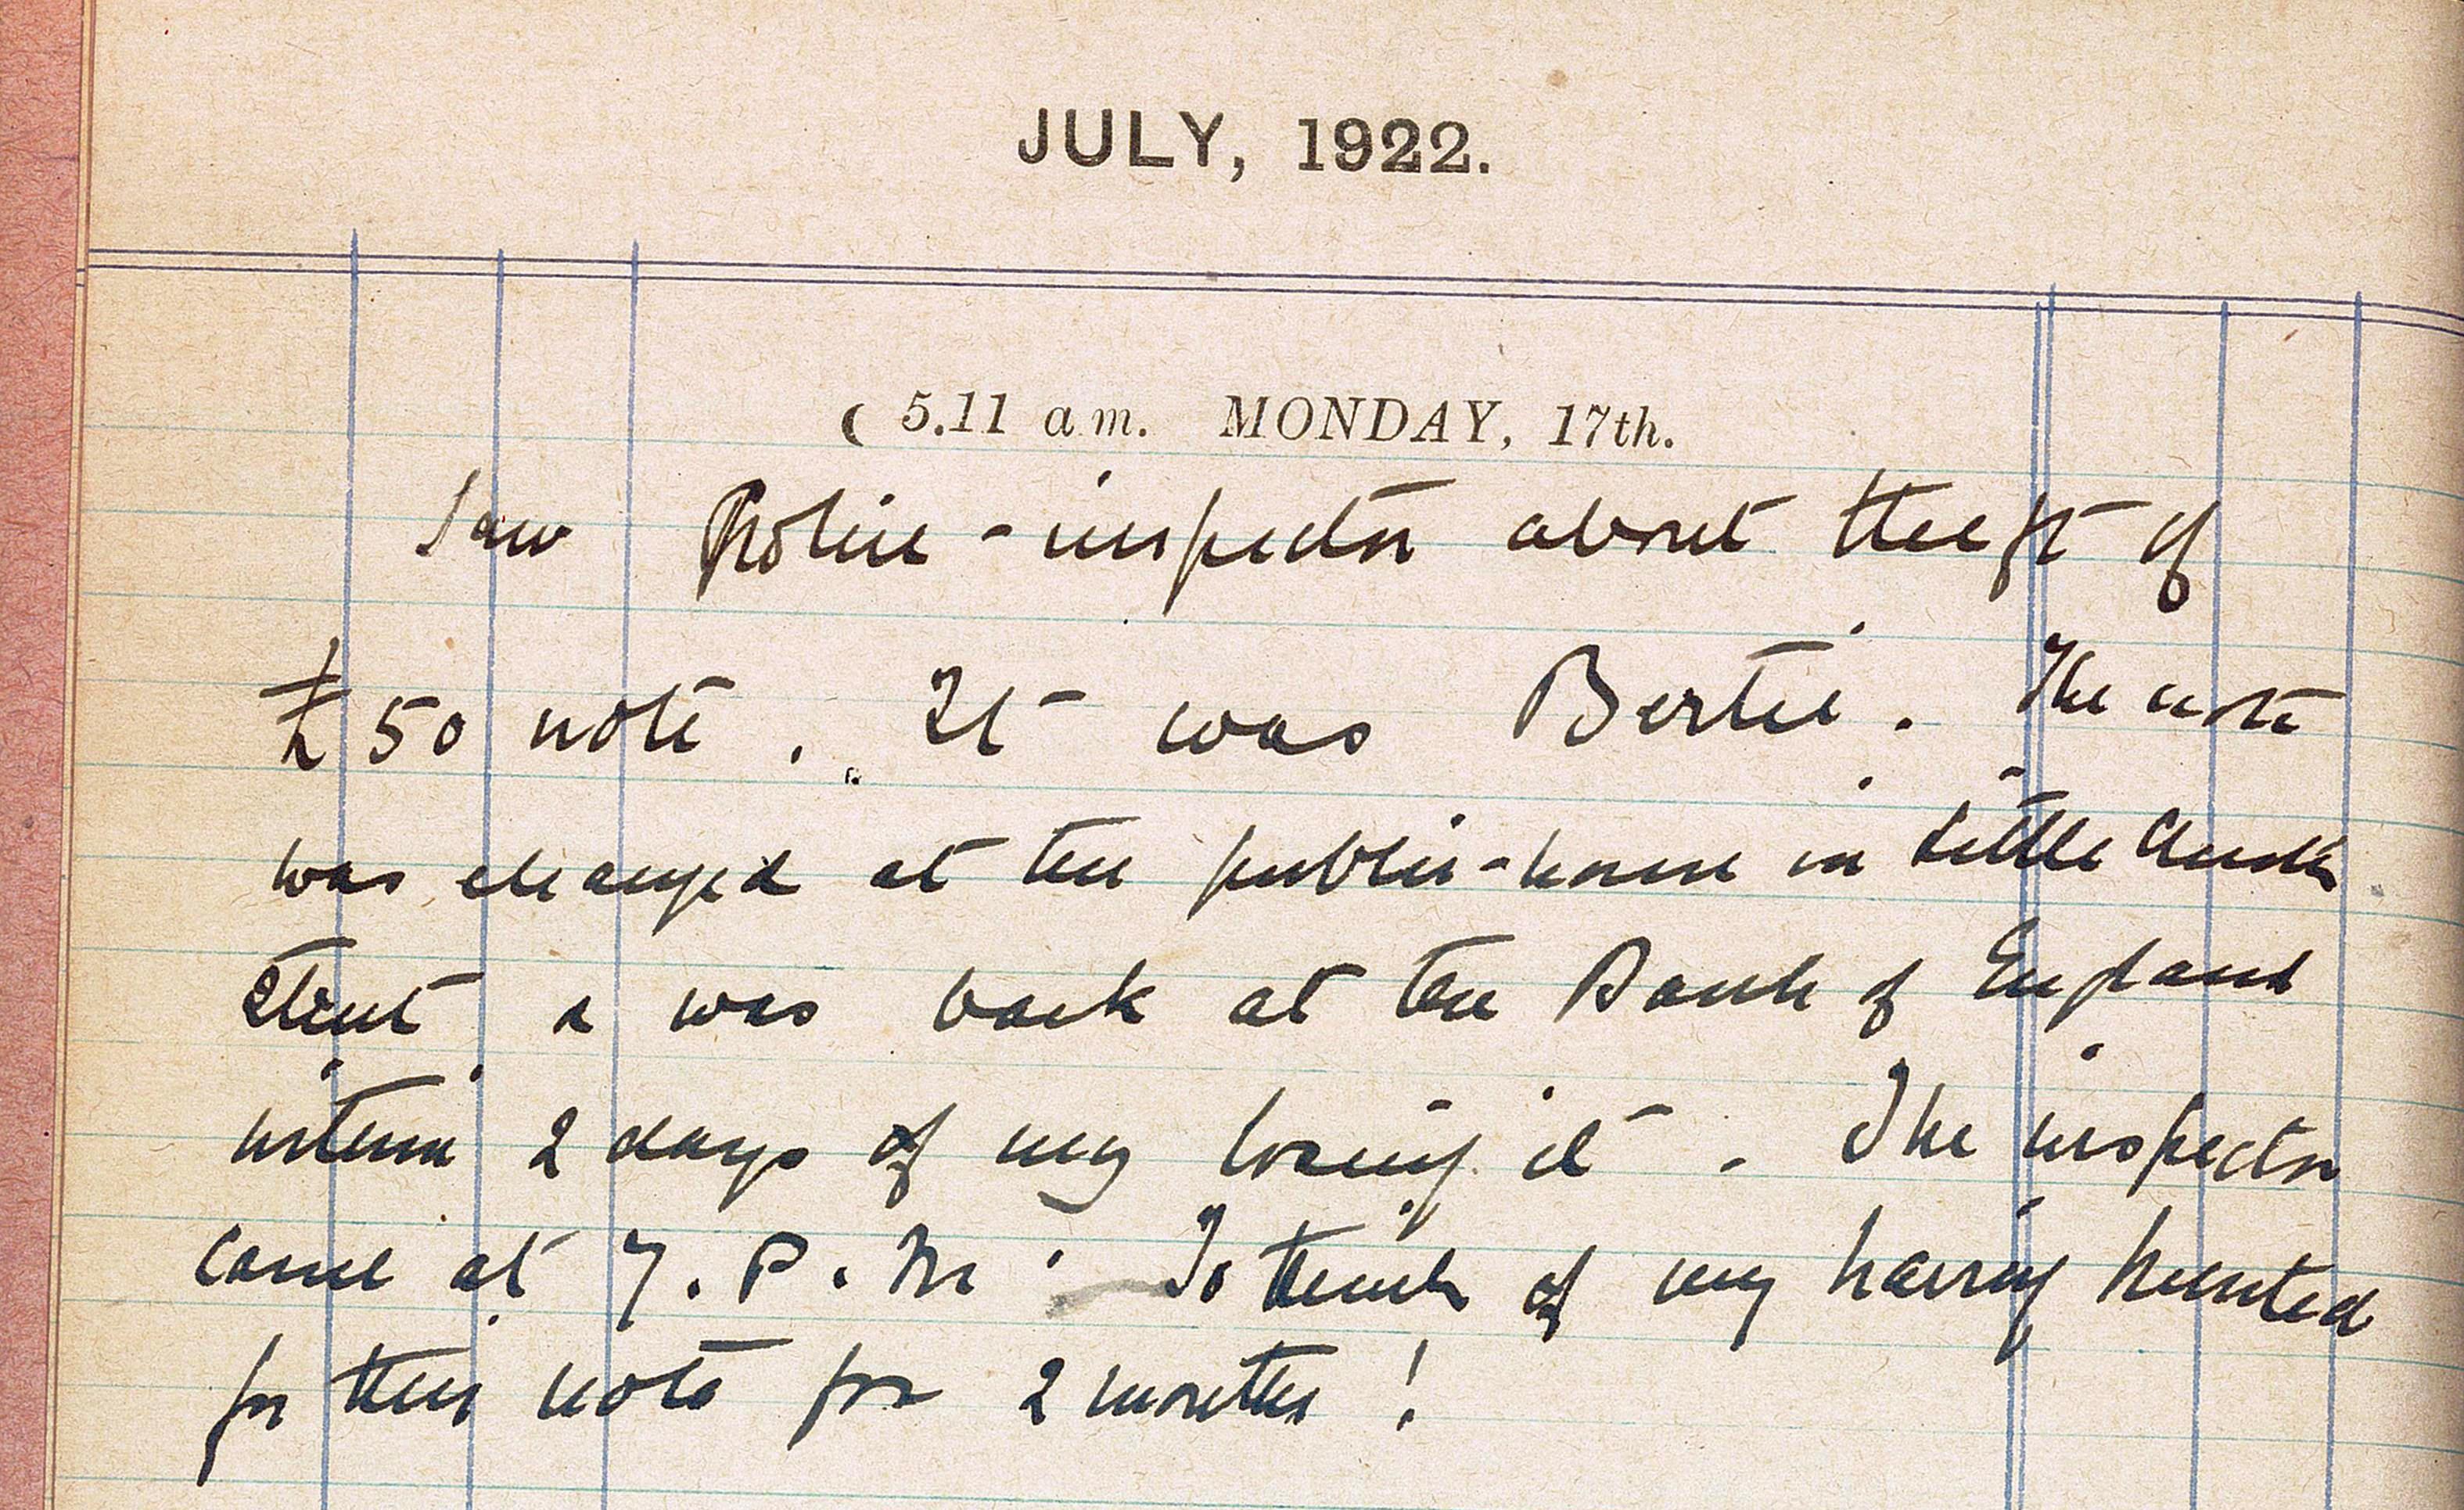 JULY, 1922.
☾ 5.11 a.m. MONDAY, 17th.
Saw Police-inspector about theft of
£50 note. It was Bertie. The note
was changed at the public-house in Little
Street & was back at the Bank of England
within 2 days of my losing it. The inspector
came at 7. P. M. To think of my having hunted
for this note for 2 months!